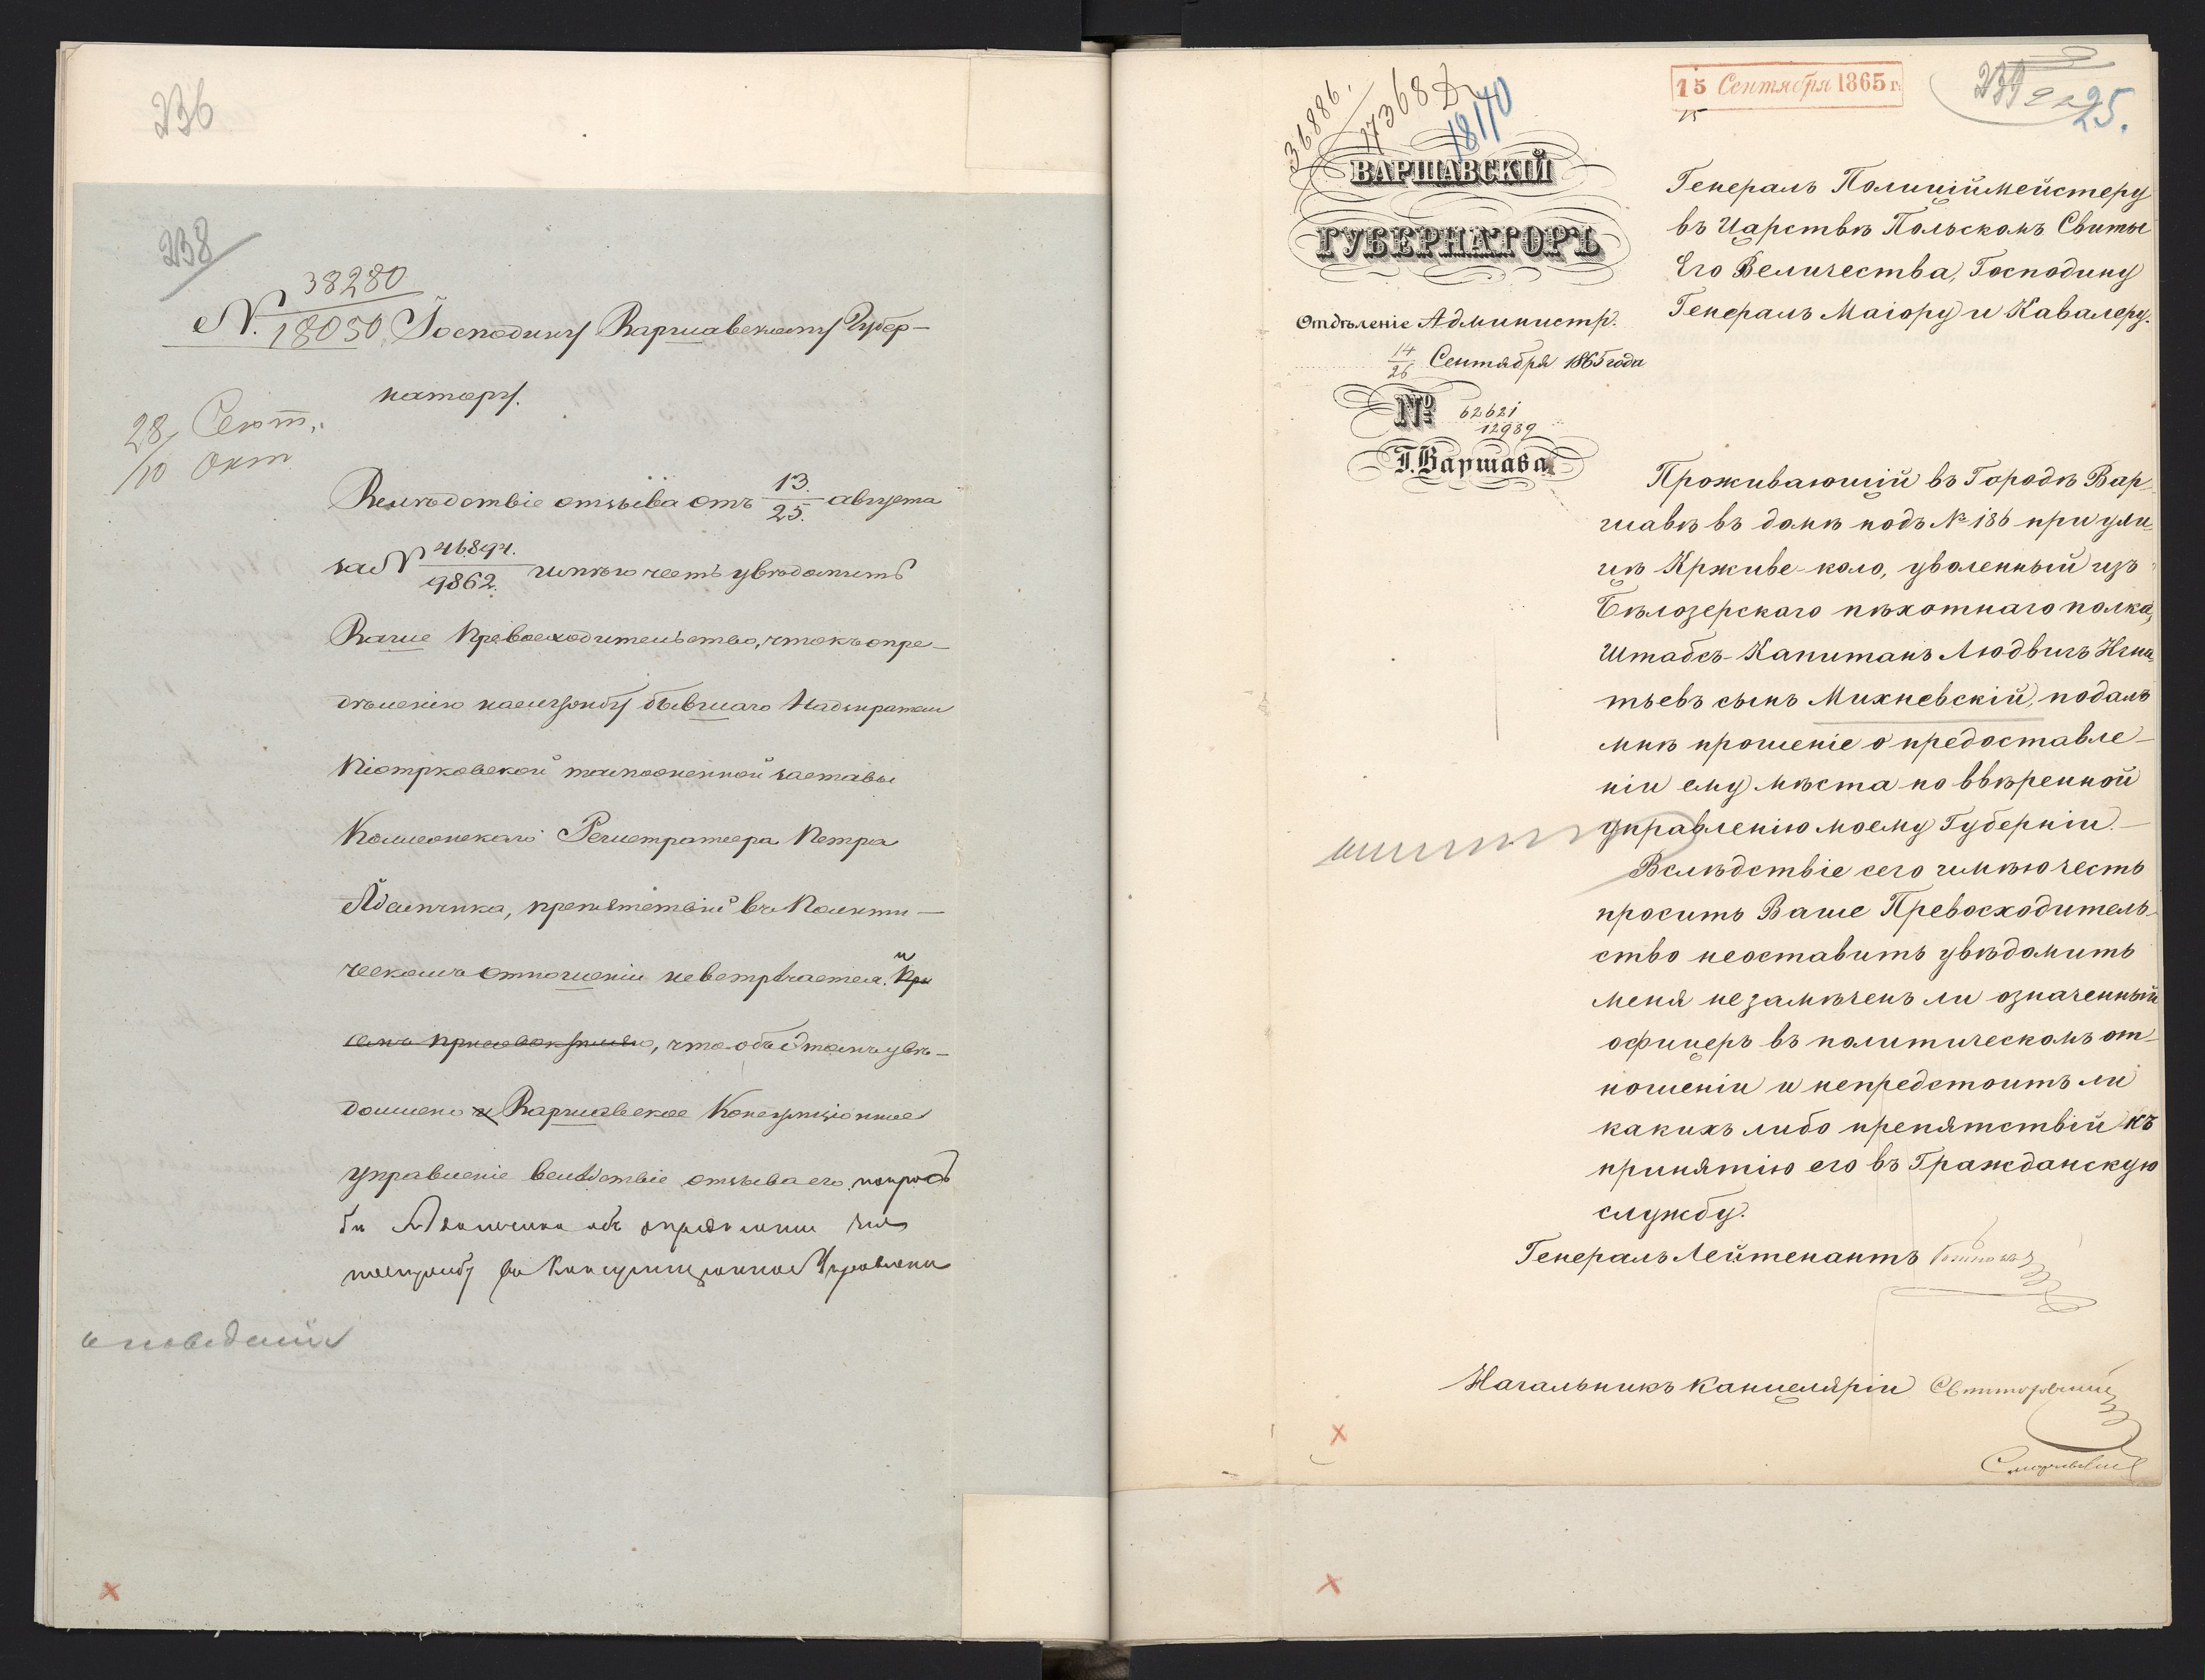 236
238
38280
N. 18050 Господину Варшавскому Губер-
натору.
28 Сент.
/10 Окт
Вслѣдствіе отзыва отъ 13./25. августа
за N 46894./9862. имѣю честь увѣдомить
Ваше Превосходительство, что къ опре-
дѣленію на службу бывшаго Надзирателя
Піотрковской таможенной заставы
Коллежскаго Регистратора Петра
Адамчика, препятствій въ Полити-
ческомъ отношеніи не встрѣчается. и При
семъ присовокупляю, что объ этомъ увѣ-
домлено и Варшавское Консумціонное
управленіе вслѣдствіе отзыва его по прось
бѣ Адамчика объ опредѣленіи на
службу въ Консумціонное Управленіе
о поведеніи
15 Сентября 1865 г.
15
25.
36886.
17368
18170
ВАРШАВСКІЙ
ГУБЕРНАТОРЪ
Отдѣленіе Администр.
14/26 Сентября 1865 года
№ 62621
12989
Г. Варшава
Генералъ Полиціймейстеру
въ Царствѣ Польскомъ Свиты
Его Величества, Господину
Генералъ Маіору и Кавалеру.
Проживающій въ Городѣ Вар-
шавѣ въ домѣ подъ № 186 при ули-
цѣ Крживе-коло, уволенный изъ
Бѣлозерскаго пѣхотнаго полка,
Штабсъ-Капитанъ Людвигъ Игна-
тьевъ сынъ Михневскій, подалъ
мнѣ прошеніе о предоставле-
ніи ему мѣста по ввѣренной
управленію моему Губерніи.-
Вслѣдствіе сего имѣю честь
просить Ваше Превосходитель-
ство неоставить увѣдомить
меня незамѣченъ ли означенный
офицеръ въ политическомъ от-
ношеніи и непредстоитъ ли
какихъ либо препятствій къ
принятію его въ Гражданскую
службу.
Генералъ Лейтенантъ
Начальникъ Канцеляріи